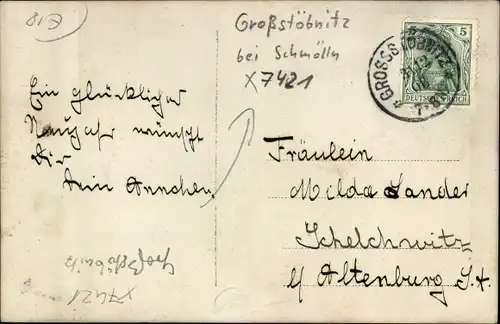 E18
Großstöbnitz
bei Schmölln
X7421
5
DEUTSCHES REICH
GROSSSTÖBNITZ
Ein glückliches
Neujahr wünscht
Dir
Dein Annchen
Fräulein
Milda Sander
Schelchwitz
b/ Altenburg S.A.
Großstöbnitz
X7421